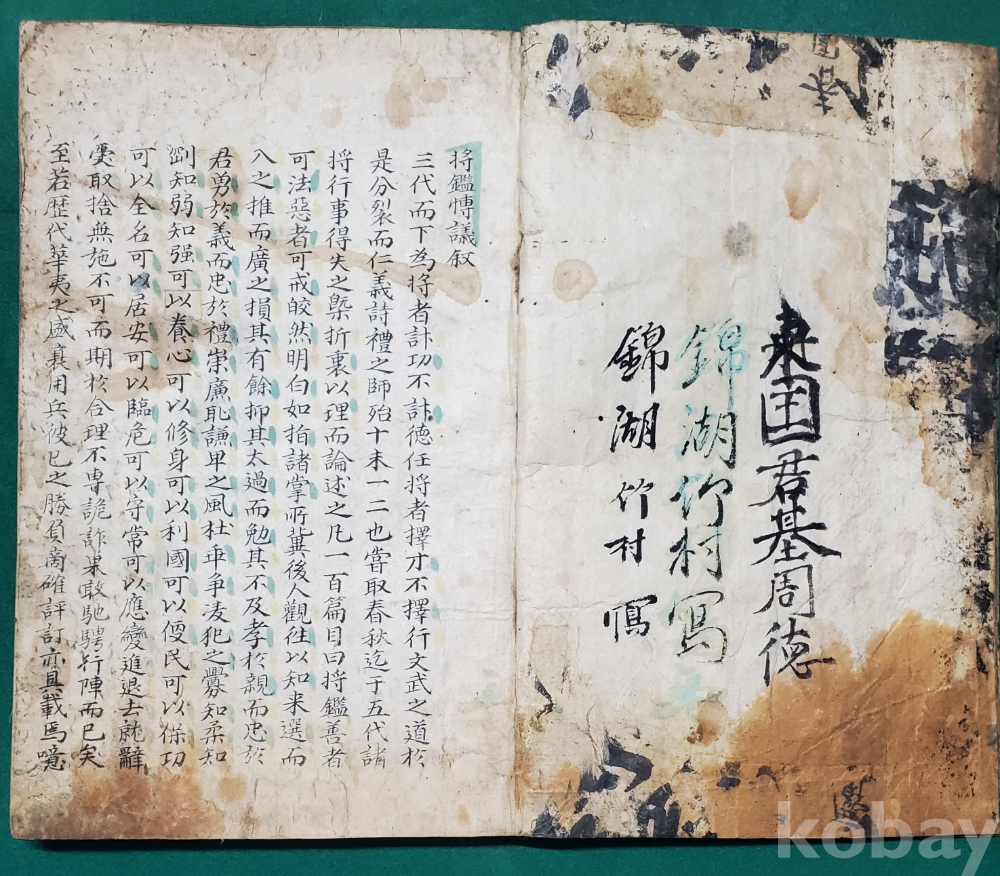 東国君基周德
錦湖竹村寫
錦湖竹村寫
将鑑愽議叙
三代而下為将者計功不計德任将者擇才不擇行文武之道於
是分裂而仁義詩禮之師殆十未一二也甞取春秋迄于五代諸
将行事得失之槩折衷以理而論述之凡一百篇目曰将鑑善者
可法惡者可戒皎然明白如指諸掌所兾後人觀往以知来選而
入之推而廣之損其有餘抑其太過而勉其不及孝於親而忠於
君勇於義而忠於禮崇廉耻謙卑之風杜乖争凌犯之釁知柔知
剛知弱知强可以養心可以修身可以利國可以便民可以保功
可以全名可以居安可以臨危可以守常可以應變進退去就辭
受取捨無施不可而期於合理不専詭詐果敢馳騁行陣而已矣
至若歴代華夷之盛衰用兵彼已之勝負啇確評訂亦具載焉噫
kobay